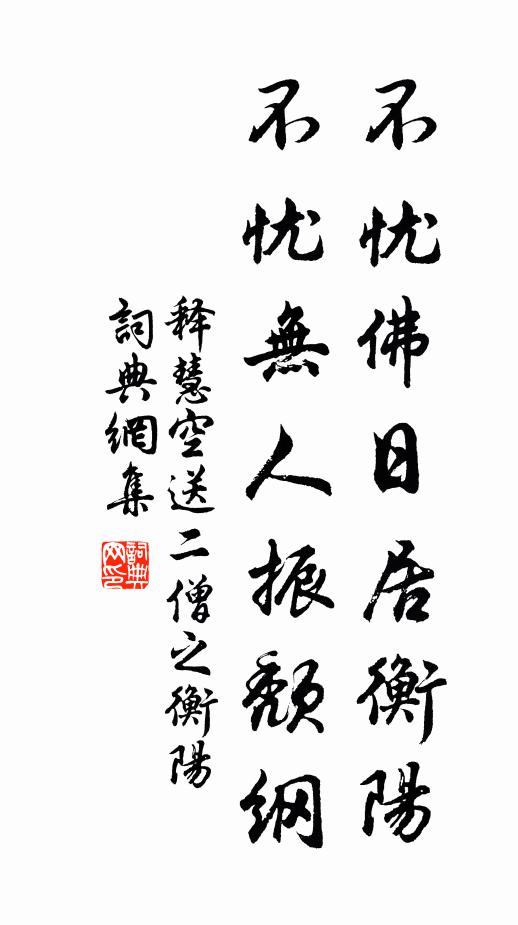 不忧佛日居衡陽
不忧無人振颓纲
释慧空送二僧之衡陽
詞典網集
詞典网印